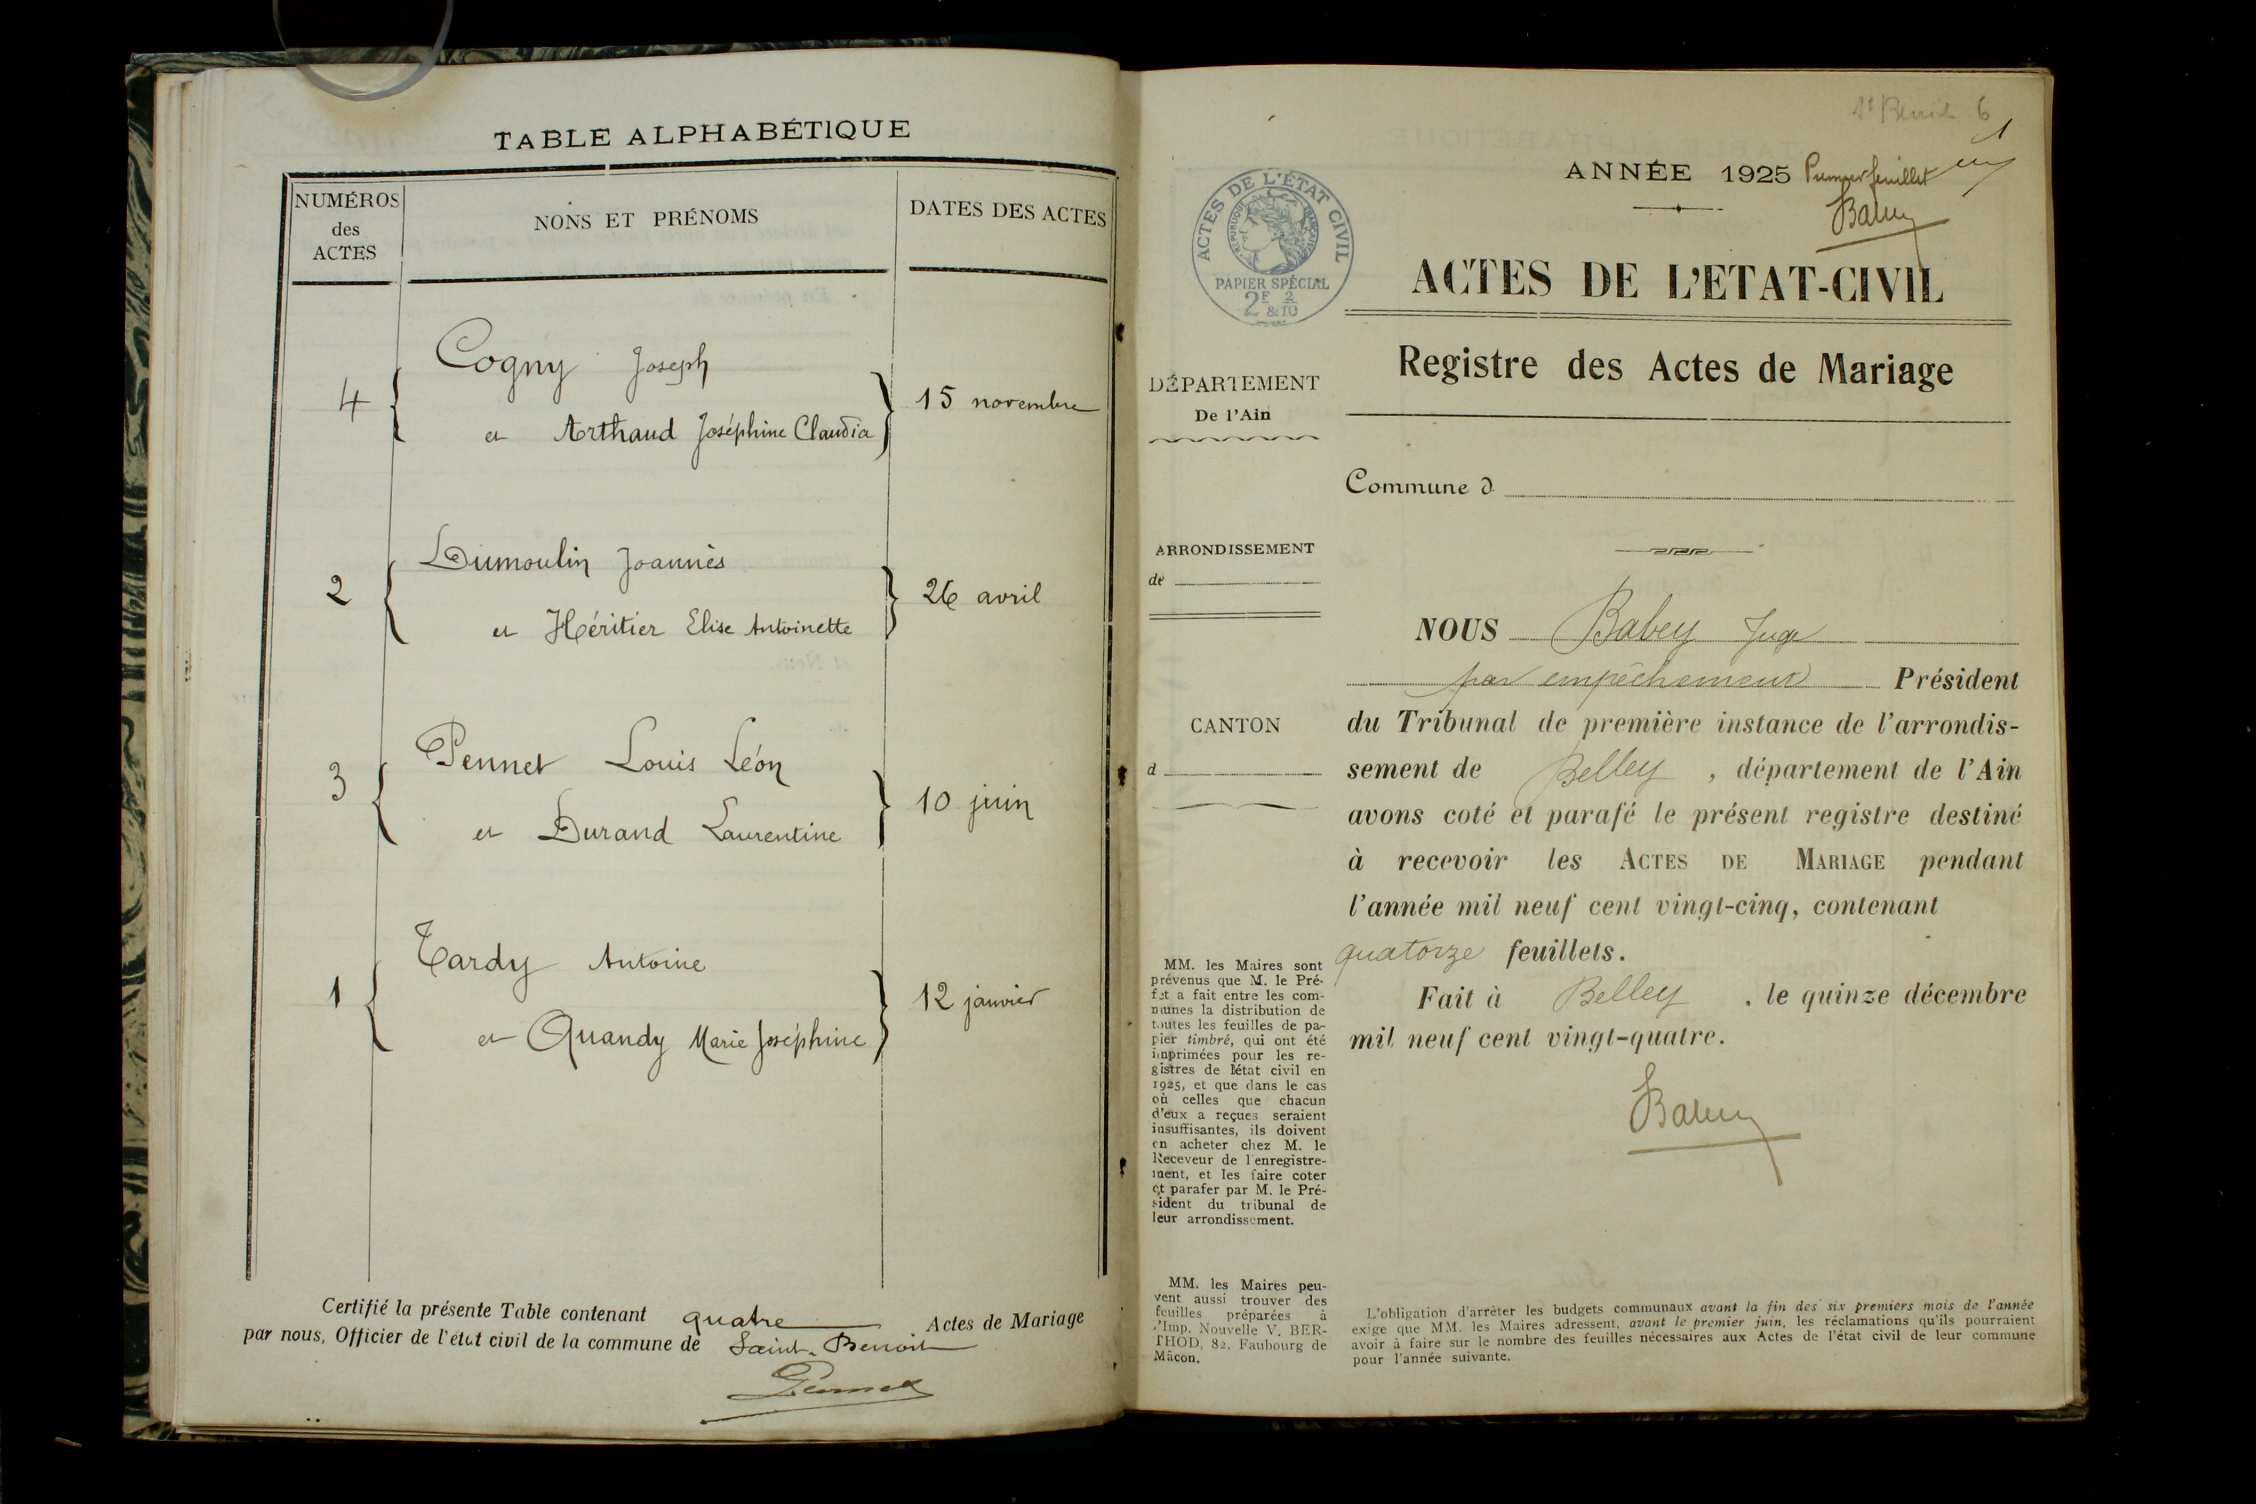 TABLE ALPHABÉTIQUE
NUMÉROS
des
ACTES
NONS ET PRÉNOMS
DATES DES ACTES
Cogny Joseph
4
15 novembre
et Arthaud Joséphine Claudia
Dumoulin Joannès
2
26 avril
et Héritier Elise Antoinette
Pennet Louis Léon
3
10 juin
et Durand Laurentine
Tardy Antoine
1
12 janvier
et Quandy Marie Joséphine
Certifié la présente Table contenant quatre Actes de Mariage
par nous, Officier de l'état civil de la commune de Saint-Benoit
Pennet
6
ANNÉE 1925 Premier feuillet
Babey
ACTES DE L'ÉTAT CIVIL
RÉPUBLIQUE FRANÇAISE
PAPIER SPÉCIAL
2F & 2/10
ACTES DE L'ETAT-CIVIL
Registre des Actes de Mariage
DÉPARTEMENT
De l'Ain
Commune d
ARRONDISSEMENT
de
CANTON
d
NOUS Babey Juge
par empêchement Président
du Tribunal de première instance de l'arrondis-
sement de Belley, département de l'Ain
avons coté et parafé le présent registre destiné
à recevoir les ACTES DE MARIAGE pendant
l'année mil neuf cent vingt-cinq, contenant
quatorze feuillets.
Fait à Belley, le quinze décembre
mil neuf cent vingt-quatre.
Babey
MM. les Maires sont
prévenus que M. le Pré-
fet a fait entre les com-
munes la distribution de
toutes les feuilles de pa-
pier timbré, qui ont été
imprimées pour les re-
gistres de l'état civil en
1925, et que dans le cas
où celles que chacun
d'eux a reçues seraient
insuffisantes, ils doivent
en acheter chez M. le
Receveur de l'enregistre-
ment, et les faire coter
et parafer par M. le Pré-
sident du tribunal de
leur arrondissement.
MM. les Maires peu-
vent aussi trouver des
feuilles préparées à
l'Imp. Nouvelle V. BER-
THOD, 82. Faubourg de
Mâcon.
L'obligation d'arrêter les budgets communaux avant la fin des six premiers mois de l'année
exige que MM. les Maires adressent, avant le premier juin, les réclamations qu'ils pourraient
avoir à faire sur le nombre des feuilles nécessaires aux Actes de l'état civil de leur commune
pour l'année suivante.